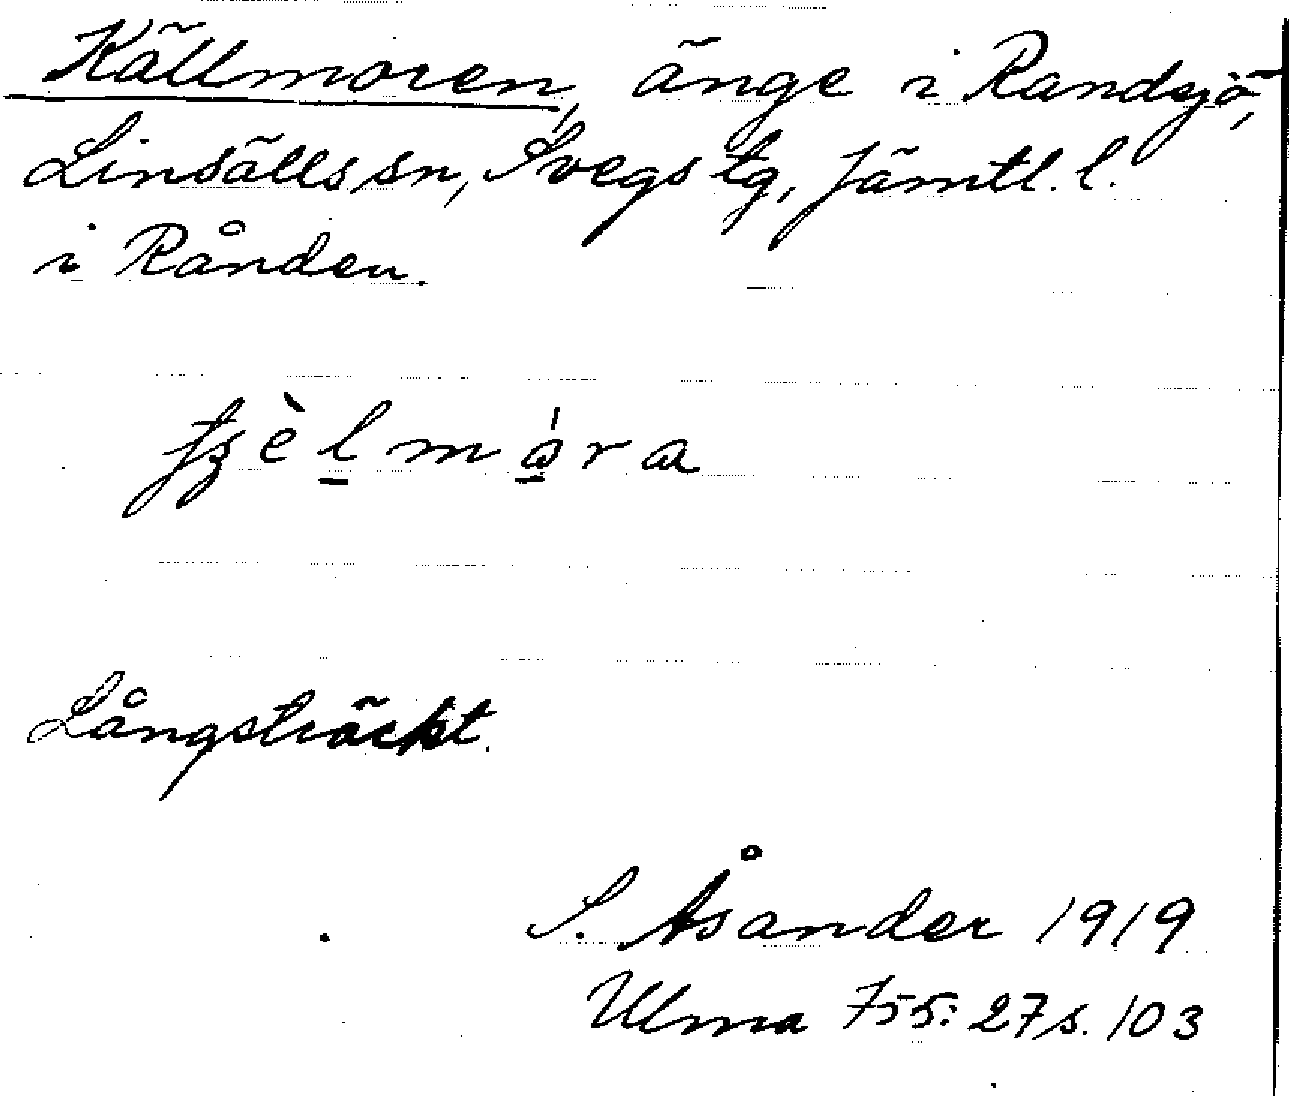 Källmoren, änge i Randsjö,
Linsälls sn, Svegs tg, Jämtl. l.
i Rånden.
Långsträckt.
S. Åsander 1919
Ulma 755:27 s. 103